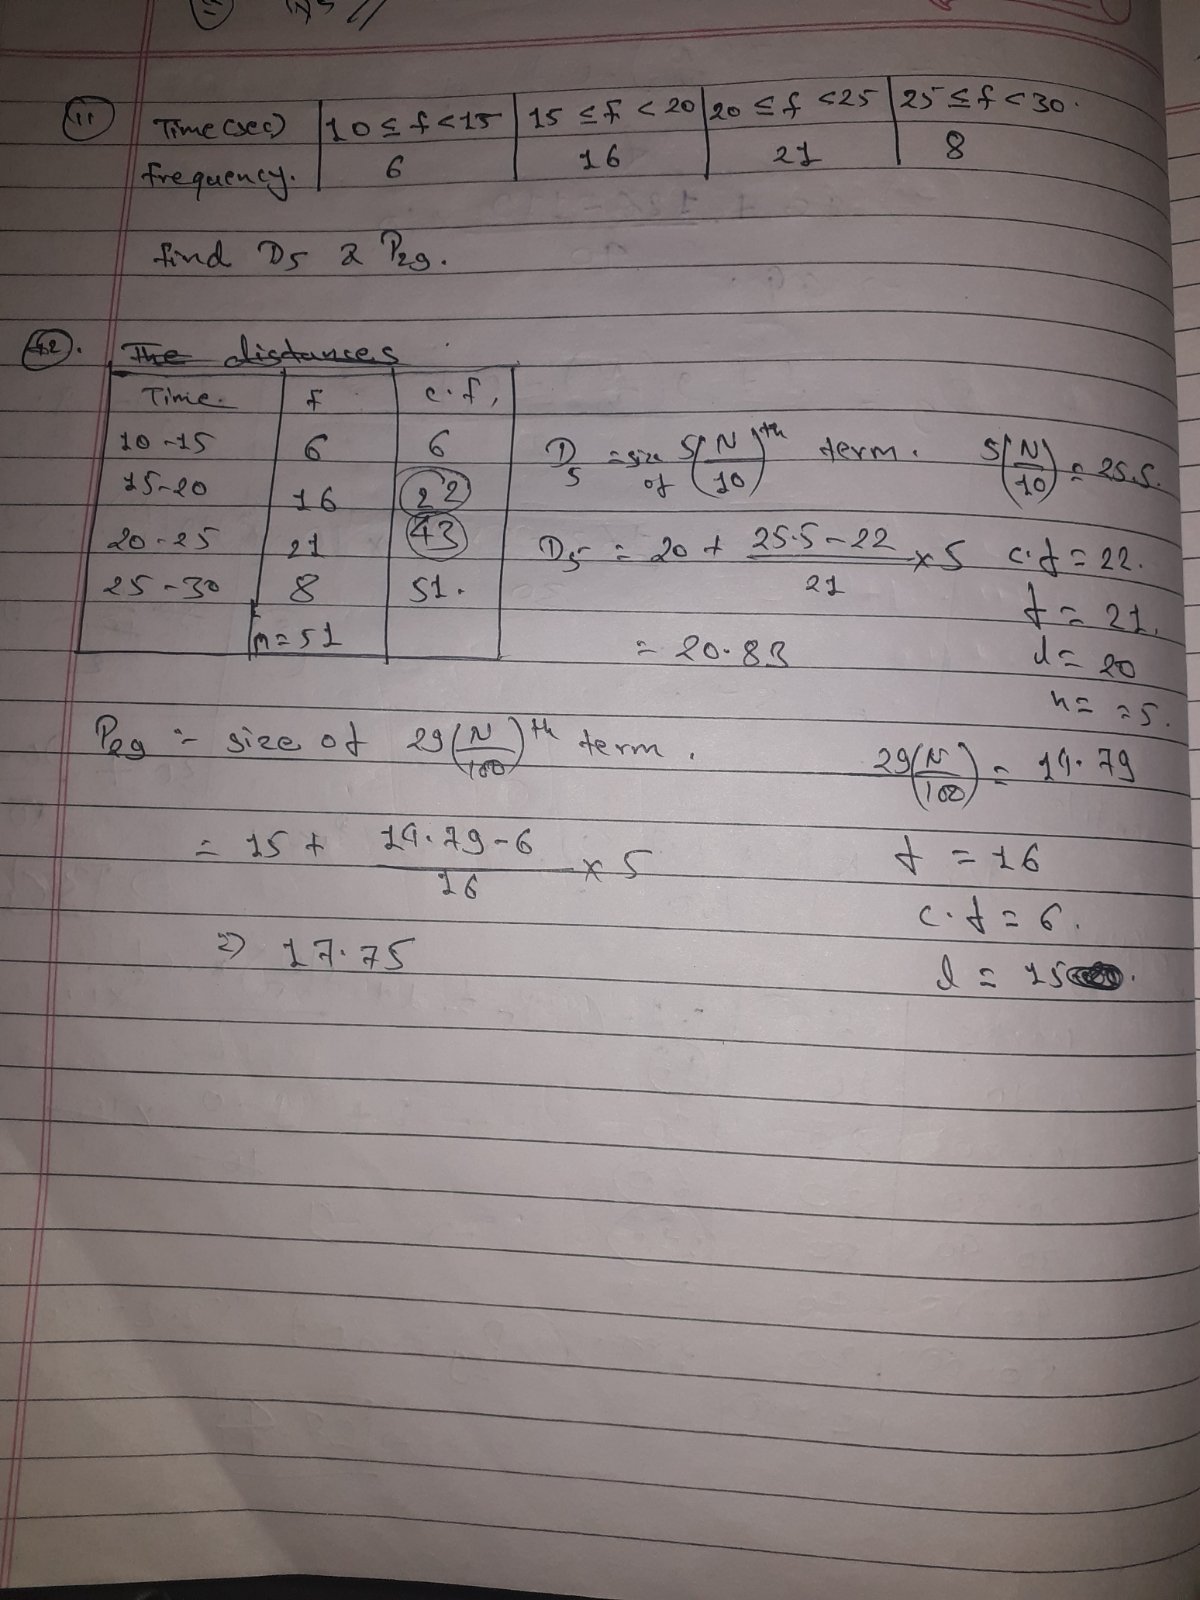 (11) Time (sec) | 10 ≤ f < 15 | 15 ≤ f < 20 | 20 ≤ f < 25 | 25 ≤ f < 30.
frequency. | 6 | 16 | 21 | 8
find D5 & P29.
The distances
Time. | f | c.f,
10-15 | 6 | 6
15-20 | 16 | 22
20-25 | 21 | 43
25-30 | 8 | 51.
n = 51
D5 = size of 5(N/10)th term. 5(N/10) = 25.5.
D5 = 20 + 25.5-22/21 × 5 c.f = 22.
f = 21.
= 20.83 l = 20
h = = 5.
P29 = size of 29(N/100)th term. 29(N/100) = 14.79
= 15 + 14.79-6/16 × 5 f = 16
c.f = 6.
⇒ 17.75 l = 15 .